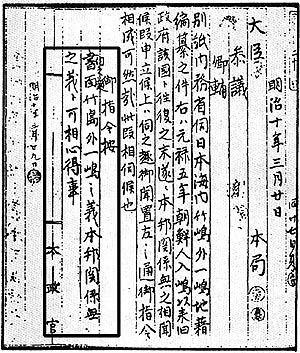 明治十年三月廿日
大臣 本局
参議
卿輔
別紙内務省伺日本海内竹嶋外一嶋地籍
編纂之件右ハ元禄五年朝鮮人入嶋以来旧
政府該国ト往復之末遂ニ本邦関係無之相聞
候段申立候上ハ伺之趣御聞置左之通御指令
相成可然哉此段相伺候也
御指令按
書面竹島外一嶋之義本邦関係無
之義ト可相心得事
明治十年三月廿九日
太政官